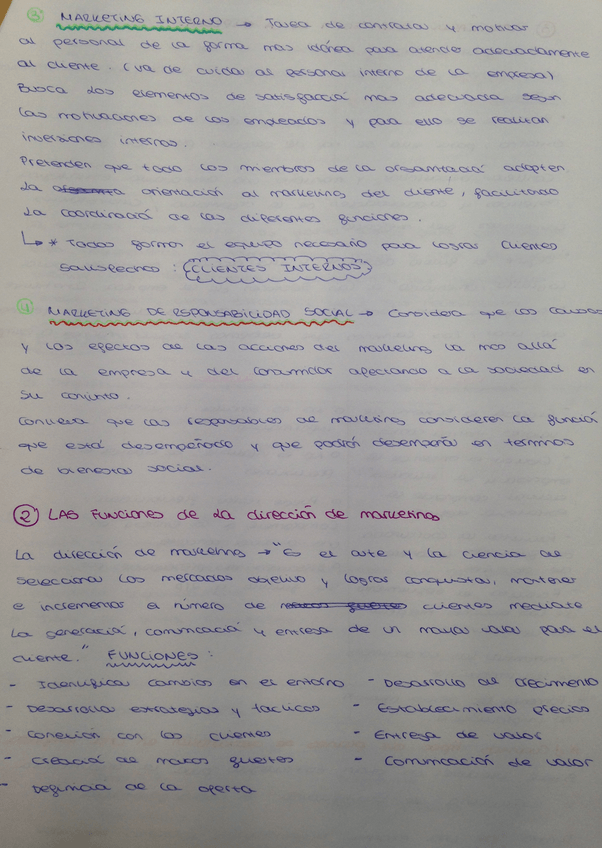 ③ MARKETING INTERNO → Tarea de contratar y motivar
al personal de la forma mas idónea para atender adecuadamente
al cliente. (va de cuidar al personal interno de la empresa)
Busca los elementos de satisfacció mas adecuada segun
las motivaciones de los empleados y para ello se realizan
inversiones internas.
Pretenden que todo los miembros de la organització adopten
la orientación al marketing del cliente, facilitando
la coordinació de las diferentes funciones.
↳ * Todos forman el equipo necesario para lograr clientes
satisfechos : CLIENTES INTERNOS
④ MARKETING DE RESPONSABILIDAD SOCIAL → Considera que las causas
y los efectos de las acciones del marketing va mas allá
de la empresa y del consumidor afectando a la sociedad en
su conjunto.
Conlleva que los responsables de marketing consideren la funció
que está desempeñado y que podrán desempeñar en terminos
de bienestar social.
② LAS Funciones de la dirección de marketing
La dirección de marketing → "Es el arte y la ciencia de
seleccionar los mercados objetivo y lograr conquistar, mantener
e incrementar el número de clientes mediante
la generació, comunicació y entrega de un mayor valor para el
cliente." FUNCIONES :
- Identificar cambios en el entorno - Desarrollo del crecimento
- Desarrollar estrategias y tacticas - Establecimiento precios
- Conexión con los clientes - Entrega de valor
- Creació de marcas fuertes - Comunicación de valor
- Definició de la oferta